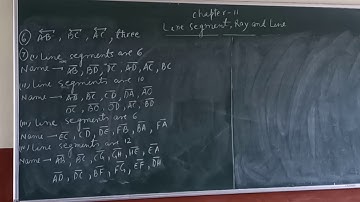 Chapter-11
Line Segment, Ray and Line
⑥ A͞B, B͞C, A͞C, three
⑦ (i) Line segments are 6
Name → A͞B, B͞D, D͞C, A͞D, A͞C, BC
(ii) Line segments are 10
Name → A͞B, B͞C, C͞D, D͞A, A͞O
O͞C, B͞O, O͞D, A͞C, B͞D
(iii) Line segments are 6
Name → E͞C, C͞D, D͞E, F͞B, B͞A, F͞A
(iv) Line segments are 12
Name → A͞B, B͞C, C͞G, G͞H, H͞E, E͞A
A͞D, D͞C, B͞F, F͞G, E͞F, D͞H